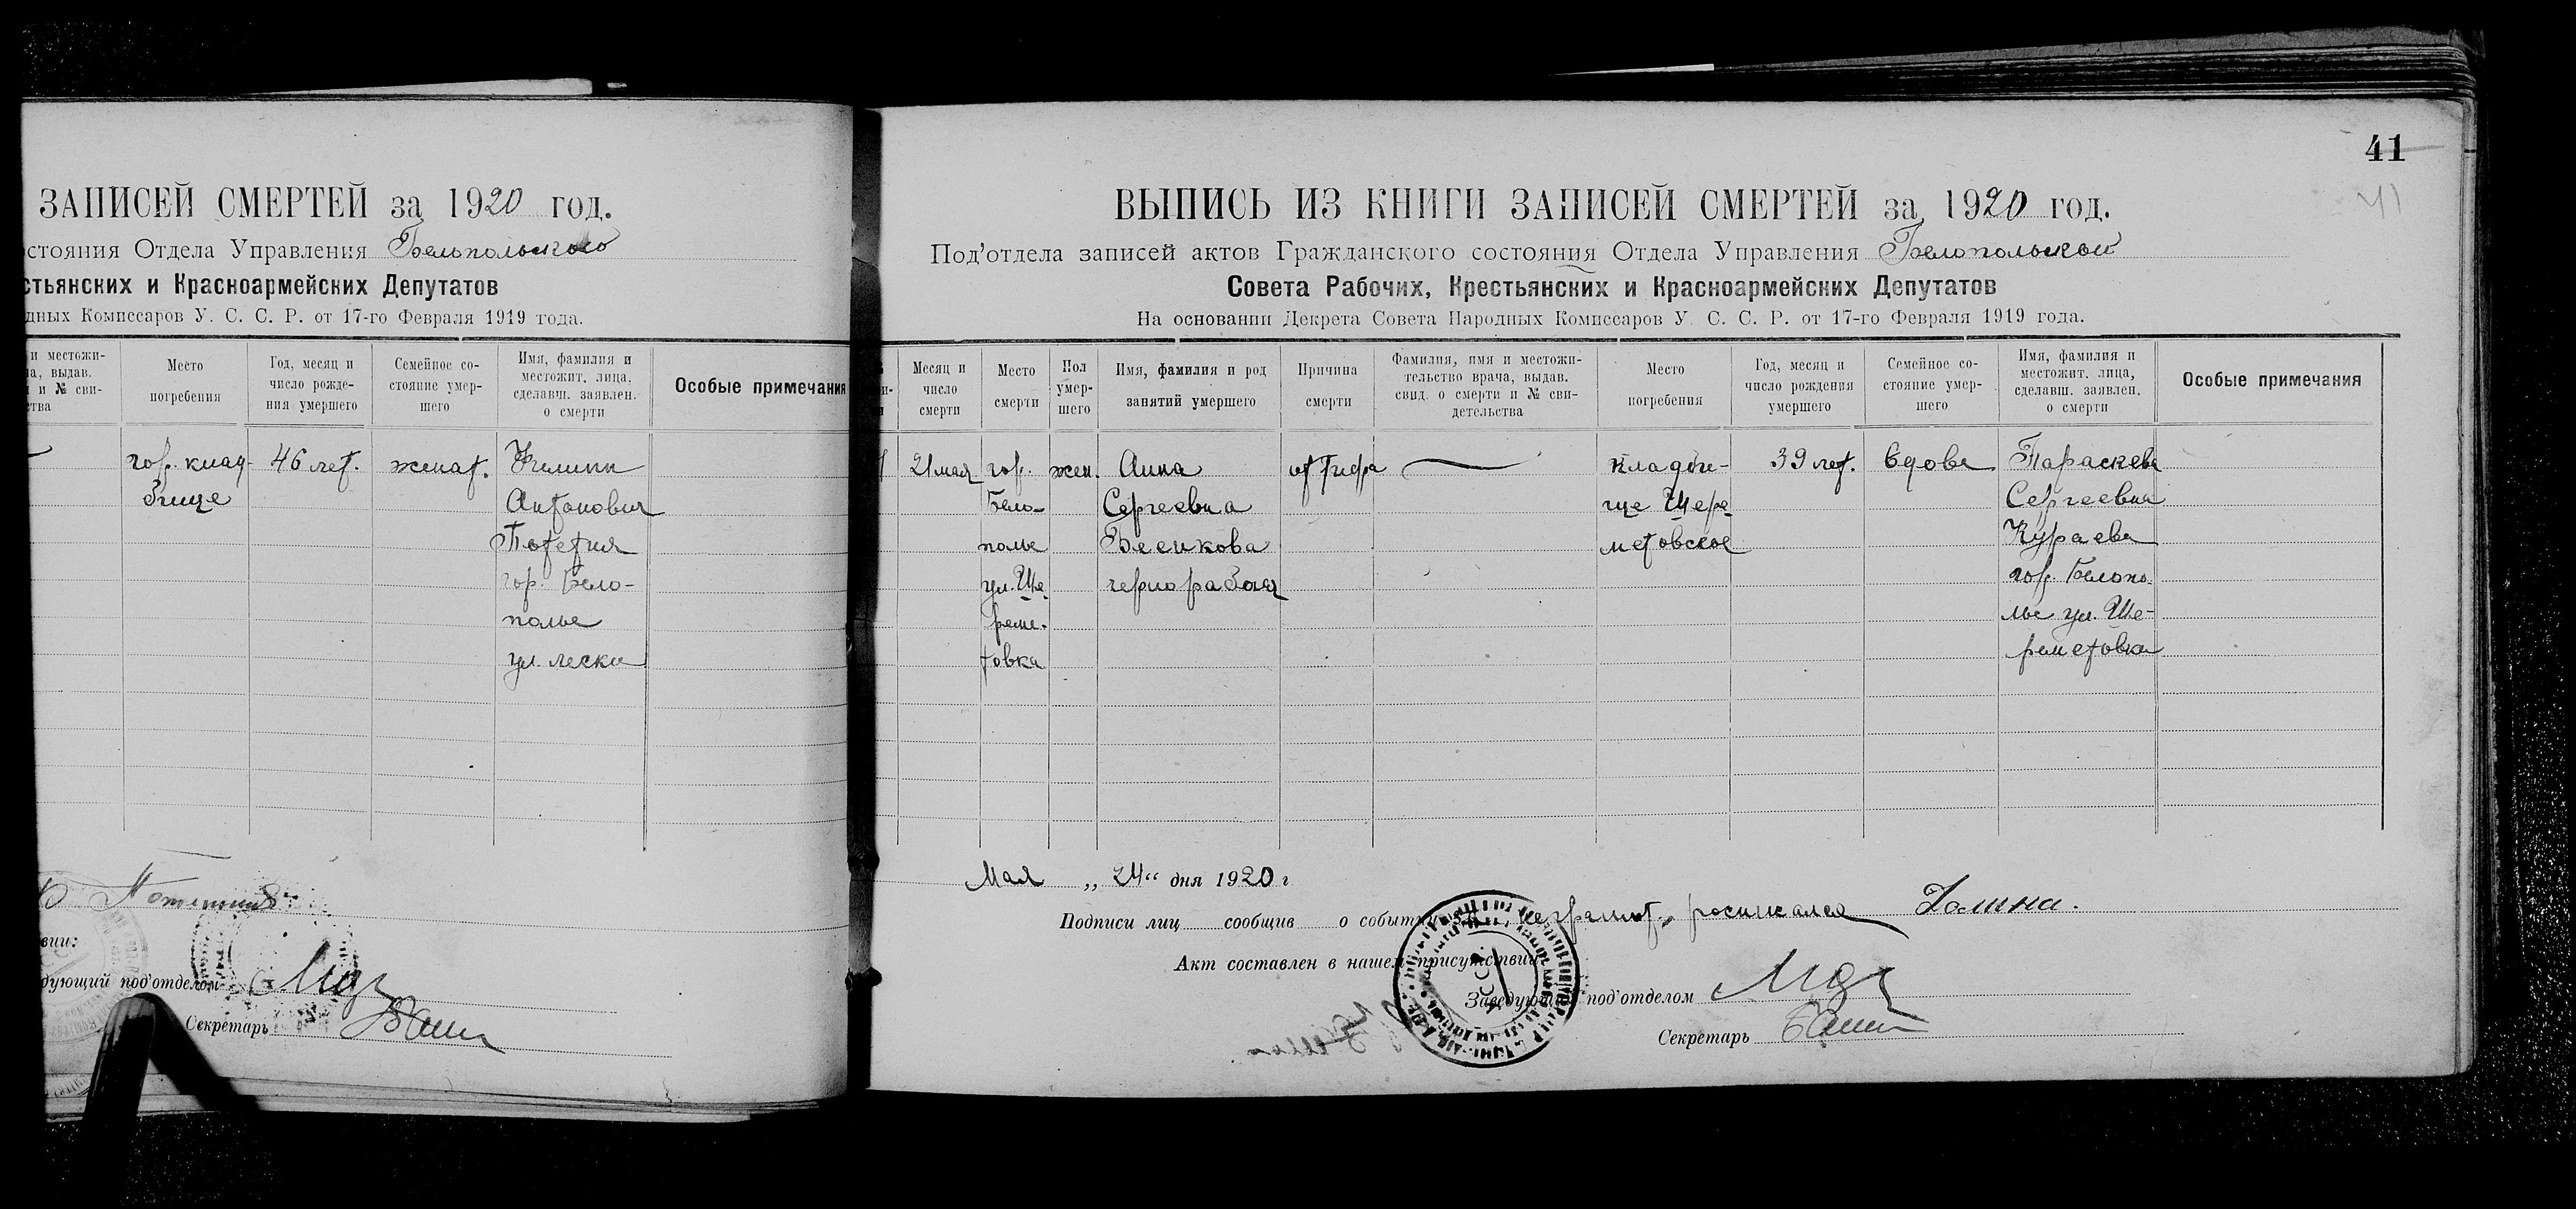 ЗАПИСЕЙ СМЕРТЕЙ за 1920 год.
стояния Отдела Управления Белопольского
стьянских и Красноармейских Депутатов
дных Комиссаров У. С. С. Р. от 17-го Февраля 1919 года.
и местожи-
ча, выдав.
и и № сви-
ства
Место
погребения
Год, месяц и
число рожде-
ния умершего
Семейное со-
стояние умер-
шего
Имя, фамилия и
местожит. лица,
сделавш. заявлен.
о смерти
Особые примечания
гор. клад-
бище
46 лет.
женат.
Филипп
Антонович
гор. Бело-
полье
ул. лески
вии:
дующий под'отделом
Секретарь
41
41
ВЫПИСЬ ИЗ КНИГИ ЗАПИСЕЙ СМЕРТЕЙ за 1920 год.
Под'отдела записей актов Гражданского состояния Отдела Управления Белопольской
Совета Рабочих, Крестьянских и Красноармейских Депутатов
На основании Декрета Совета Народных Комиссаров У. С. С. Р. от 17-го Февраля 1919 года.
Месяц и
число
смерти
Место
смерти
Пол
умер-
шего
Имя, фамилия и род
занятий умершего
Причина
смерти
Фамилия, имя и местожи-
тельство врача, выдав.
свид. о смерти и № сви-
детельства
Место
погребения
Год, месяц и
число рождения
умершего
Семейное со-
стояние умер-
шего
Имя, фамилия и
местожит. лица,
сделавш. заявлен.
о смерти
Особые примечания
21 мая
гор.
Бело-
полье
ул. Ше
реме-
товка
жен.
Анна
Сергеевна
Веенкова
чернорабоч
от Тифа
кладби-
ще Шере
метовское
39 лет.
вдова
Параскева
Сергеевна
Кураева
гор. Белопо
лье ул. Ше-
реметовка
Мая „ 24 “ дня 1920 г
Подписи лиц сообщив о событии неграмот., росписался
Акт составлен в нашем присутствии:
Заведующий под'отделом
Секретарь